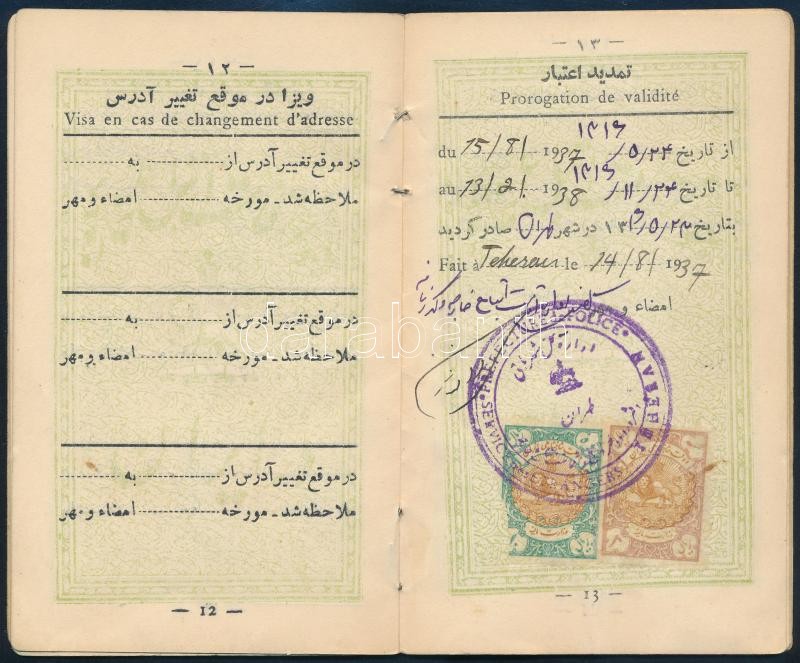 — ۱۲ —
ویزا در موقع تغییر آدرس
Visa en cas de changement d'adresse
در موقع تغییر آدرس از ............ به ............
ملاحظه شد - مورخه ............ امضاء و مهر
در موقع تغییر آدرس از ............ به ............
ملاحظه شد - مورخه ............ امضاء و مهر
در موقع تغییر آدرس از ............ به ............
ملاحظه شد - مورخه ............ امضاء و مهر
— 12 —
— ۱۳ —
تمدید اعتبار
Prorogation de validité
du 15/8/ 1937 از تاریخ ۲۴/۵/۱۳۱۶
au 13/2/ 1938 تا تاریخ ۲۴/۱۱/۱۳۱۶
بتاریخ ۲۳/۵/۱۳۱۶ در شهر طهران صادر گردید
Fait à Teheran le 14/8/1937
امضاء و
PREFECTURE POLICE TEHERAN
طهران
— 13 —
darabanth